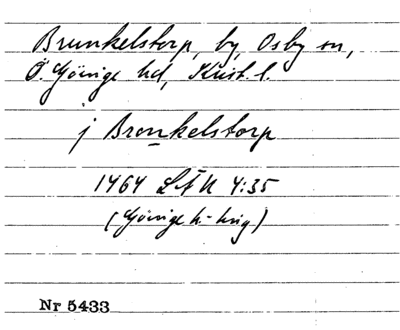 Brunkelstorp, by, Osby sn,
Ö. Göinge hd, Krist. l.
j Bronkelstorp
1464 LÄU 4:35
(Göinge h-)
Nr 5433